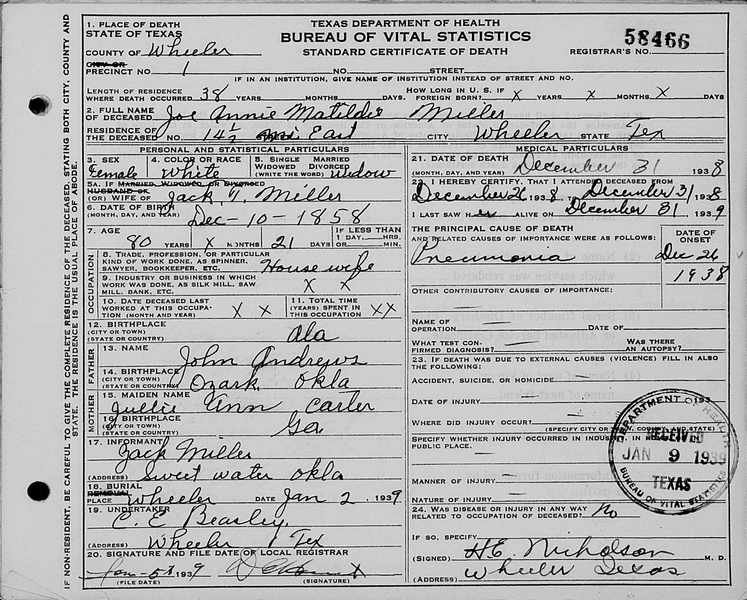 1. PLACE OF DEATH
STATE OF TEXAS
COUNTY OF Wheeler
CITY OR
PRECINCT NO. 1 NO. STREET
TEXAS DEPARTMENT OF HEALTH
BUREAU OF VITAL STATISTICS
STANDARD CERTIFICATE OF DEATH
58466
REGISTRAR'S NO.
IF IN AN INSTITUTION, GIVE NAME OF INSTITUTION INSTEAD OF STREET AND NO.
LENGTH OF RESIDENCE WHERE DEATH OCCURRED 38 YEARS MONTHS DAYS HOW LONG IN U. S. IF FOREIGN BORN? X YEARS X MONTHS X DAYS
2. FULL NAME OF DECEASED Joe Annie Matilda Miller
RESIDENCE OF THE DECEASED NO. 14½ mi East CITY Wheeler STATE Tex
PERSONAL AND STATISTICAL PARTICULARS
3. SEX Female
4. COLOR OR RACE White
5. SINGLE MARRIED WIDOWED DIVORCED (WRITE THE WORD) Widow
5A. IF MARRIED, WIDOWED OR DIVORCED
HUSBAND OF
(OR) WIFE OF Jack Miller
6. DATE OF BIRTH (MONTH, DAY, AND YEAR) Dec-10-1858
7. AGE 80 YEARS X MONTHS 21 DAYS IF LESS THAN 1 DAY HRS. MIN.
OCCUPATION
8. TRADE, PROFESSION, OR PARTICULAR KIND OF WORK DONE, AS SPINNER, SAWYER, BOOKKEEPER, ETC. House wife
9. INDUSTRY OR BUSINESS IN WHICH WORK WAS DONE, AS SILK MILL, SAW MILL, BANK, ETC. X X
10. DATE DECEASED LAST WORKED AT THIS OCCUPATION (MONTH AND YEAR) X X
11. TOTAL TIME (YEARS) SPENT IN THIS OCCUPATION XX
12. BIRTHPLACE (CITY OR TOWN) (STATE OR COUNTRY) Ala
FATHER
13. NAME John Andrews
14. BIRTHPLACE (CITY OR TOWN) (STATE OR COUNTRY) Ozark Okla
MOTHER
15. MAIDEN NAME Jullie Ann Carter
16. BIRTHPLACE (CITY OR TOWN) (STATE OR COUNTRY) Ga
17. INFORMANT Zack Miller
(ADDRESS) Sweet water Okla
18. BURIAL
REMOVAL
PLACE Wheeler DATE Jan 2 1939
19. UNDERTAKER C. E. Beasley
(ADDRESS) Wheeler Tex
20. SIGNATURE AND FILE DATE OF LOCAL REGISTRAR
Jan-5 1939
(FILE DATE) (SIGNATURE)
MEDICAL PARTICULARS
21. DATE OF DEATH (MONTH, DAY, AND YEAR) December 31 1938
22. I HEREBY CERTIFY, THAT I ATTENDED DECEASED FROM
December 26 1938, TO December 31 1938
I LAST SAW her ALIVE ON December 31. 1939
THE PRINCIPAL CAUSE OF DEATH AND RELATED CAUSES OF IMPORTANCE WERE AS FOLLOWS:
DATE OF ONSET
Pneumonia Dec 26
1938
OTHER CONTRIBUTORY CAUSES OF IMPORTANCE:
NAME OF OPERATION DATE OF
WHAT TEST CONFIRMED DIAGNOSIS? WAS THERE AN AUTOPSY?
23. IF DEATH WAS DUE TO EXTERNAL CAUSES (VIOLENCE) FILL IN ALSO THE FOLLOWING:
ACCIDENT, SUICIDE, OR HOMICIDE
DATE OF INJURY 193
WHERE DID INJURY OCCUR?
(SPECIFY CITY OR TOWN, COUNTY, AND STATE)
SPECIFY WHETHER INJURY OCCURRED IN INDUSTRY, IN HOME, OR IN PUBLIC PLACE.
MANNER OF INJURY
NATURE OF INJURY
24. WAS DISEASE OR INJURY IN ANY WAY RELATED TO OCCUPATION OF DECEASED? No
IF SO, SPECIFY
(SIGNED) H.E. Nicholson M. D.
(ADDRESS) Wheeler Texas
DEPARTMENT OF HEALTH
RECEIVED
JAN 9 1939
TEXAS
BUREAU OF VITAL STATISTICS
IF NON-RESIDENT, BE CAREFUL TO GIVE THE COMPLETE RESIDENCE OF THE DECEASED, STATING BOTH CITY, COUNTY AND STATE. THE RESIDENCE IS THE USUAL PLACE OF ABODE.